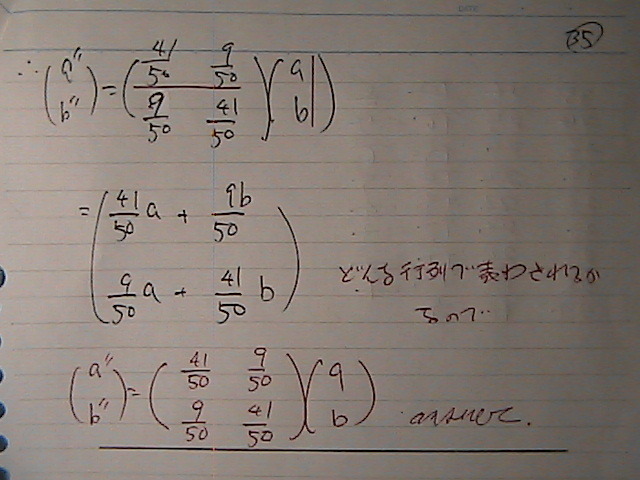 35
∴ (a'' b'') = (41/50 9/50 9/50 41/50)(a b)
= (41/50 a + 9b/50
9/50 a + 41/50 b)
どんな行列で表わされるか
なので
(a'' b'') = (41/50 9/50 9/50 41/50)(a b) answer.